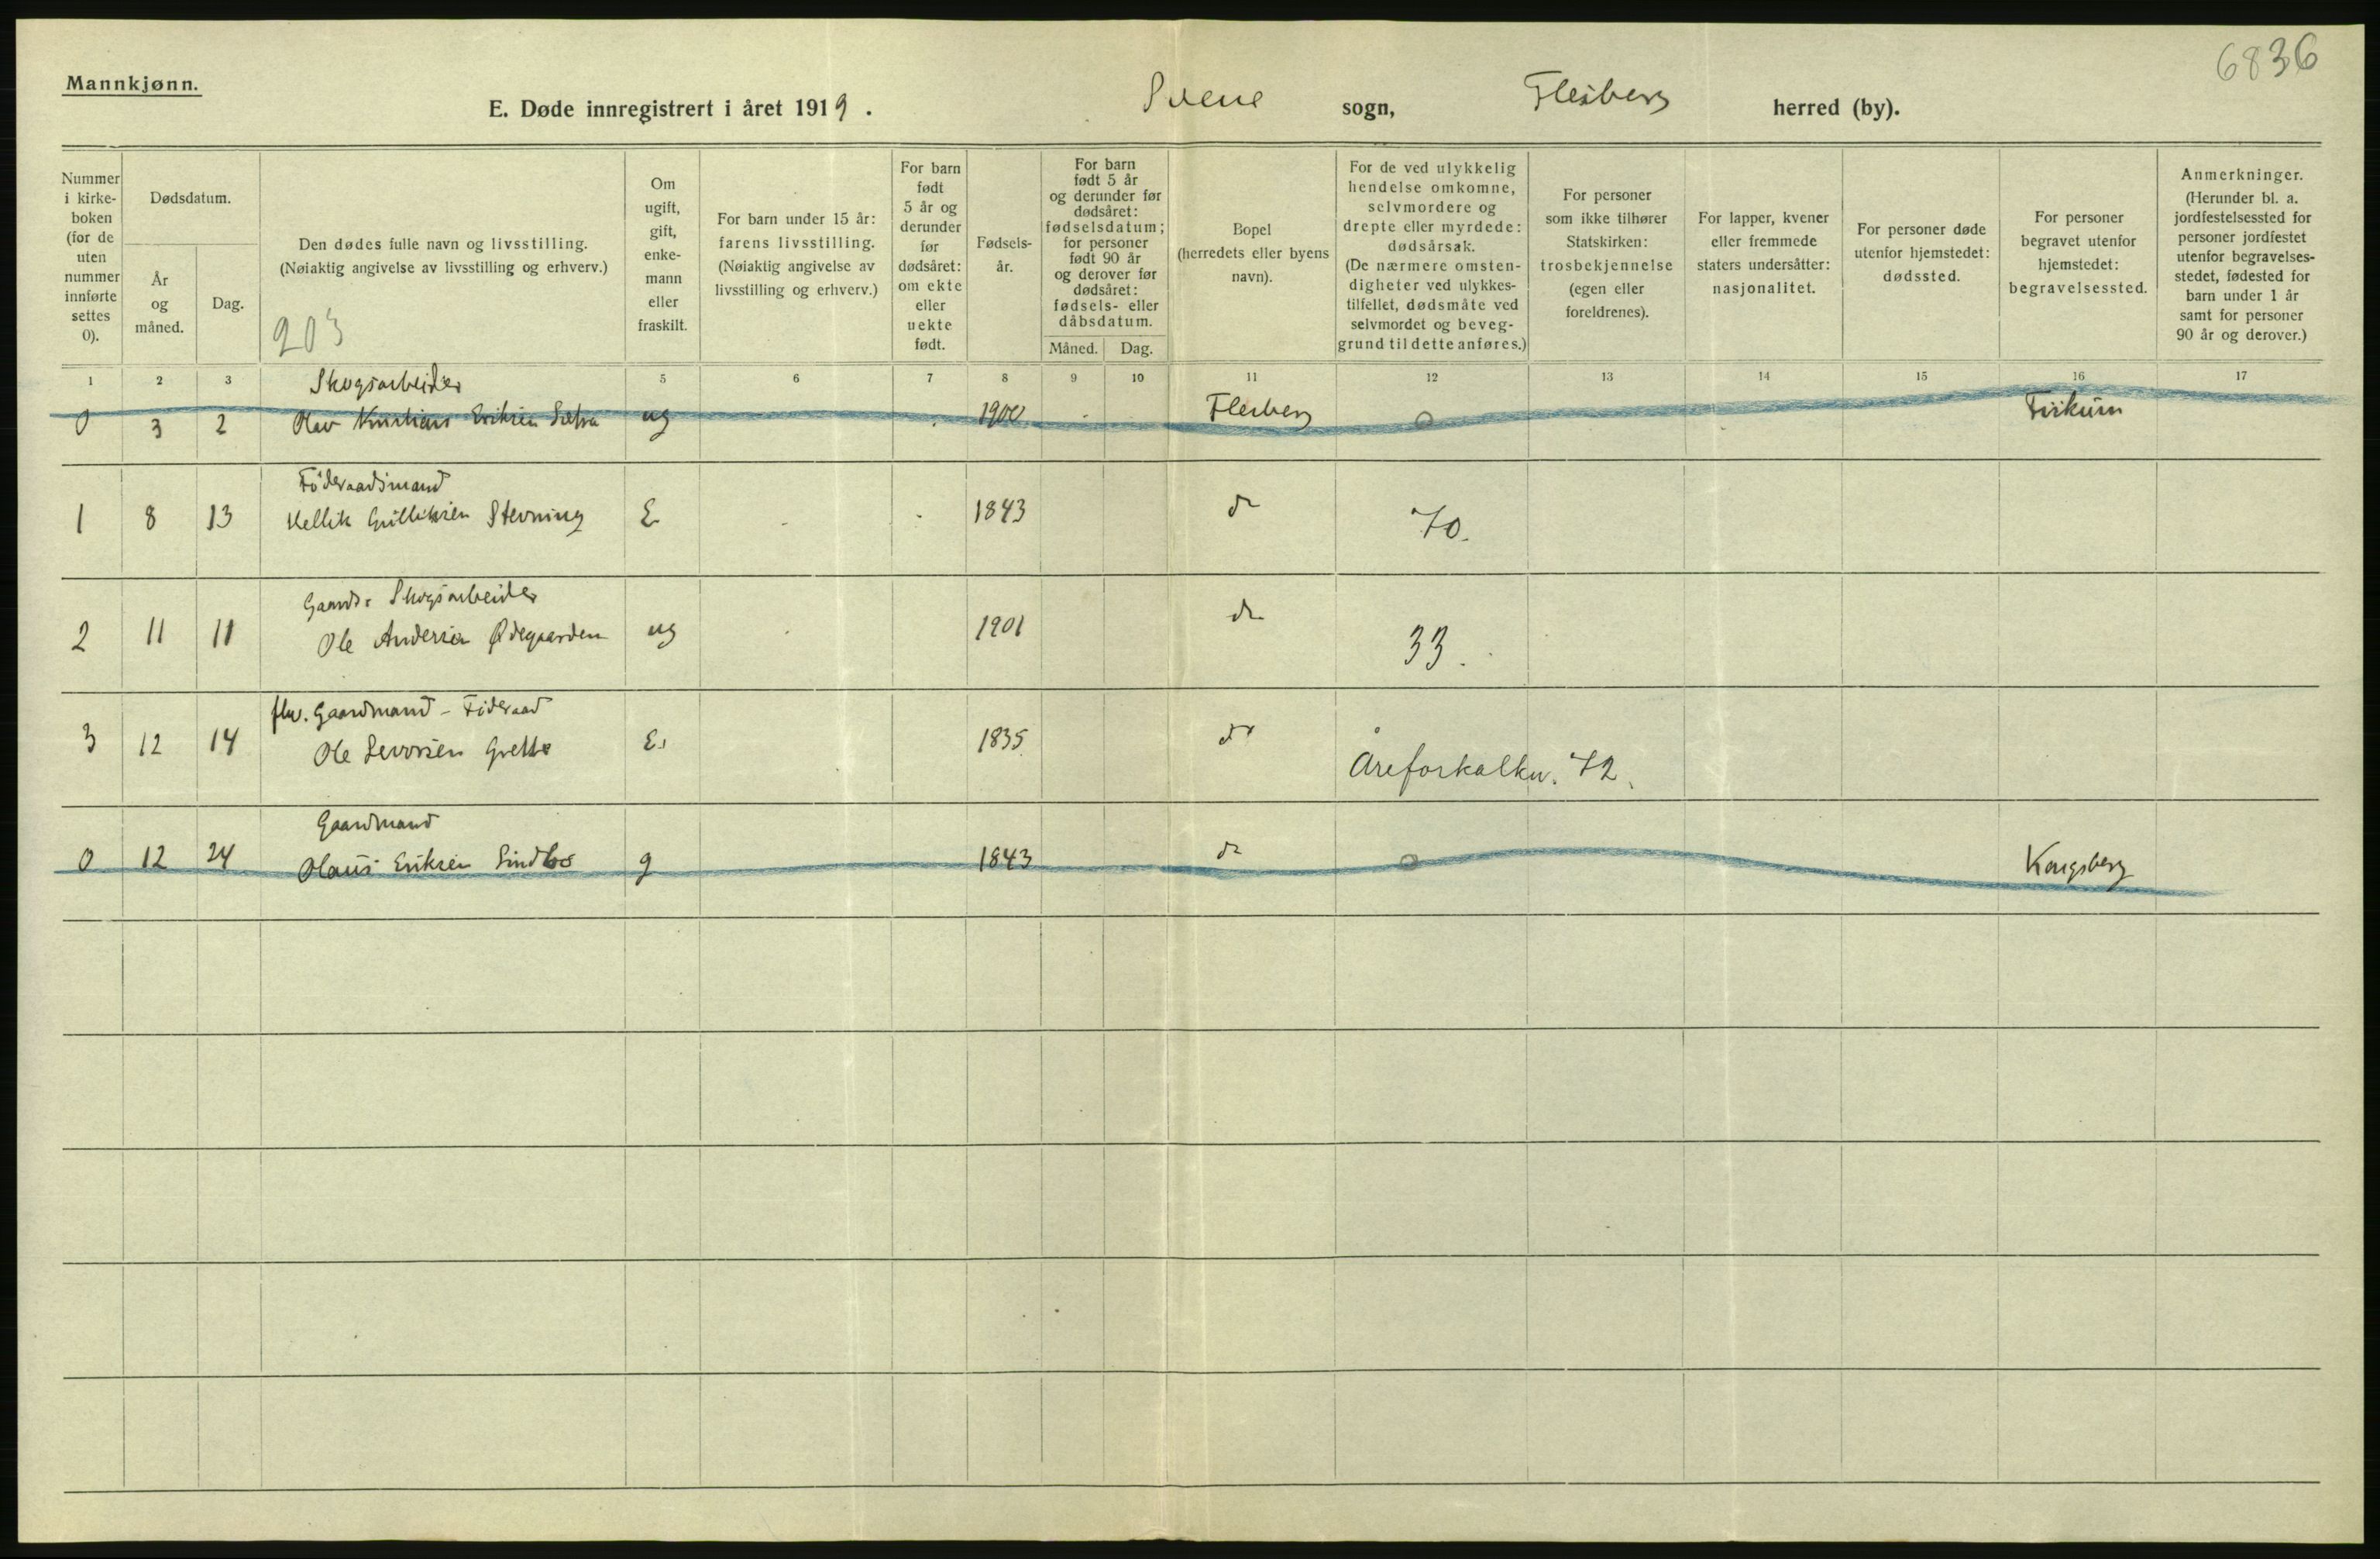 6836
Mannkjønn.
E. Døde innregistrert i året 1919. Svene sogn, Flesberg herred (by).
Nummer i kirke-boken (for de uten nummer innførte settes 0).
Dødsdatum.
År og måned.
Dag.
Den dødes fulle navn og livsstilling.
(Nøiaktig angivelse av livsstilling og erhverv.)
203
Om ugift, gift, enke-mann eller fraskilt.
For barn under 15 år: farens livsstilling. (Nøiaktig angivelse av livsstilling og erhverv.)
For barn født 5 år og derunder før dødsåret: om ekte eller uekte født.
Fødsels-år.
For barn født 5 år og derunder før dødsåret: fødselsdatum; for personer født 90 år og derover før dødsåret: fødsels- eller dåbsdatum.
Måned. Dag.
Bopel (herredets eller byens navn).
For de ved ulykkelig hendelse omkomne, selvmordere og drepte eller myrdede: dødsårsak. (De nærmere omsten-digheter ved ulykkes-tilfellet, dødsmåte ved selvmordet og beveg-grund til dette anføres.)
For personer som ikke tilhører Statskirken: trosbekjennelse (egen eller foreldrenes).
For lapper, kvener eller fremmede staters undersåtter: nasjonalitet.
For personer døde utenfor hjemstedet: dødssted.
For personer begravet utenfor hjemstedet: begravelsessted.
Anmerkninger. (Herunder bl. a. jordfestelsessted for personer jordfestet utenfor begravelses-stedet, fødested for barn under 1 år samt for personer 90 år og derover.)
1 2 3 5 6 7 8 9 10 11 12 13 14 15 16 17
Skogsarbeider
0 3 2 Olav Kristian Eriksen ug 1900 Flesberg 0
Föderaadsmand
1 8 13 Kellik Gulliksen Stevning E 1843 do 70.
Gaards- Skogsarbeider
2 11 11 Ole Andersen Ødegaarden ug 1901 do 33.
fhv. Gaardmand - Föderaad
3 12 14 Ole Sevorsen E. 1835 do Åreforkalkn. 72.
Gaardmand
0 12 24 Olaus Eriksen g 1843 do 0 Kongsberg